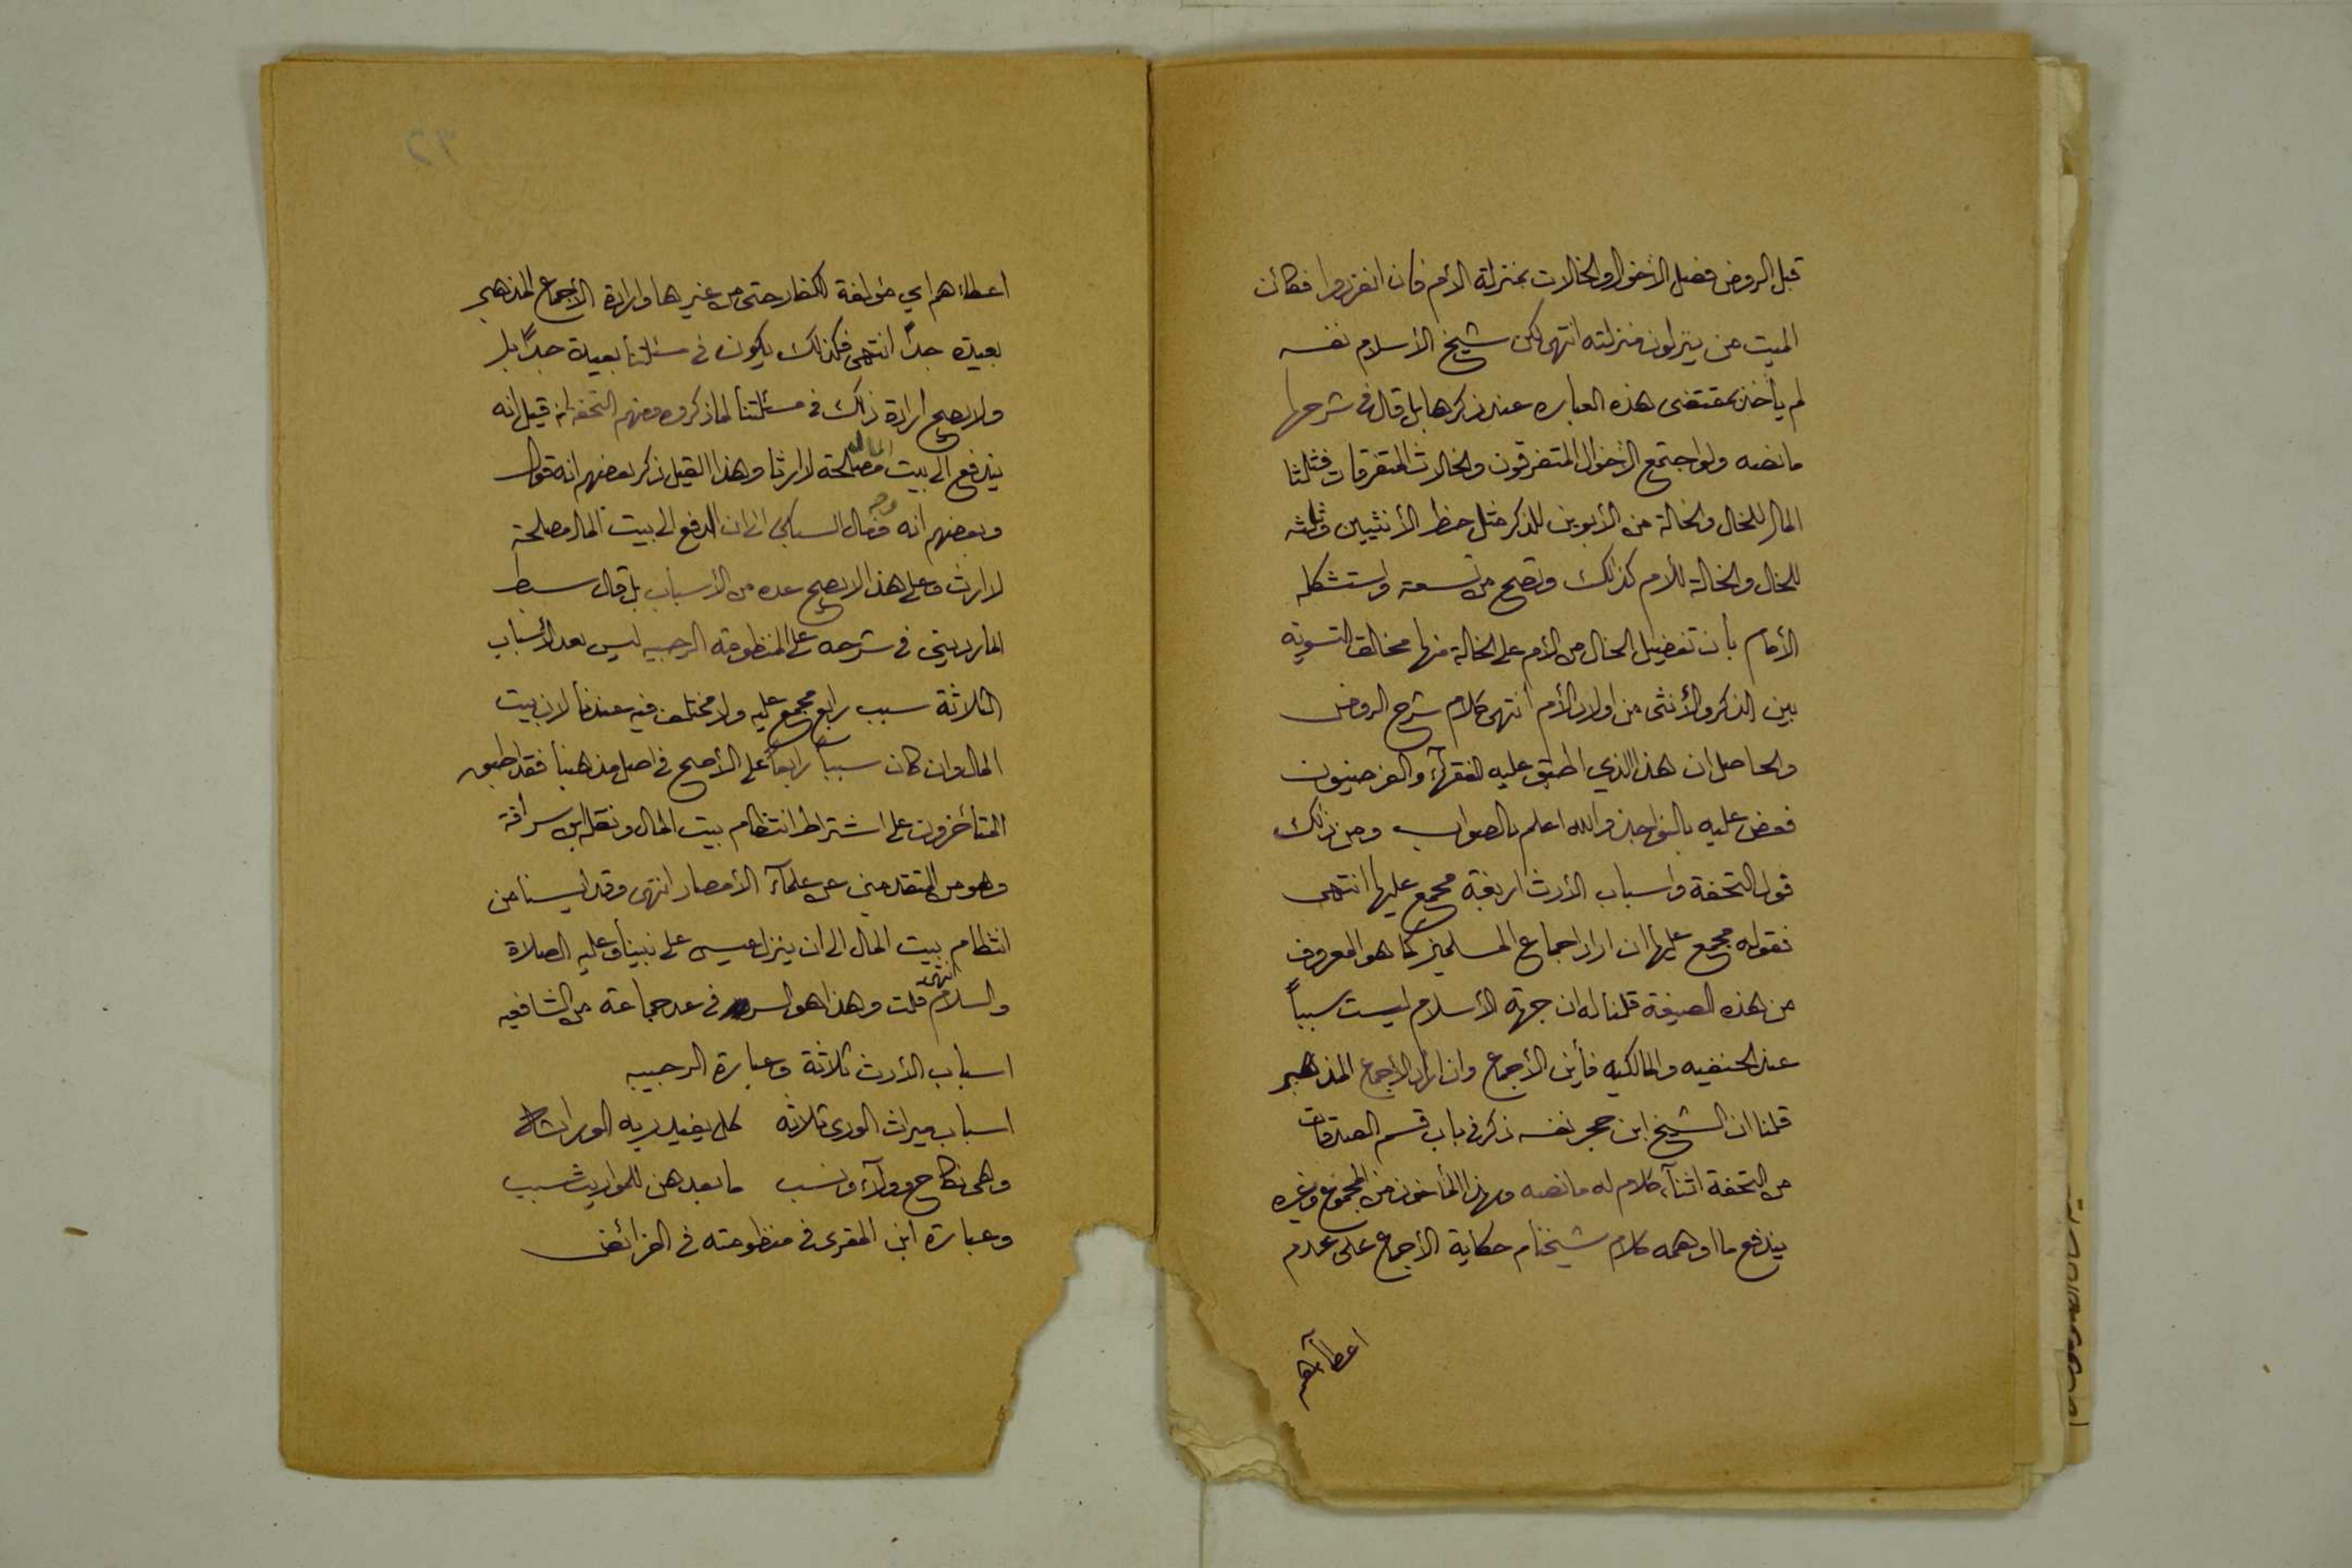 قبل الروض فصل الأخوال والخالات بمنزلة الأم فان انفردوا فكأن
الميت من ينزلون منزلته انتهى لكن شيخ الأسلام نفسه
لم يأخذ بمقتضى هذه العباره عند ذكرها بل قال فى شرحها
مانصه ولو اجتمع الأخوال المتفرقون والخالات المتفرقات فثلثا
المال للخال والخالة من الأبوين للذكر مثل حظ الأنثيين وثلثه
للخال والخالة للأم كذلك وتصح من تسعة واستشكله
الأمام بأن تفضيل الخال من الأم على الخالة منها مخالف لتسوية
بين الذكر والأنثى من اولاد الأم انتهى كلام شرح الروض
والحاصل ان هذا الذي اطبق عليه الفقهآء والفرضيون
فعض عليه بالنواجذ والله اعلم بالصواب ومن ذلك
قول التحفة واسباب الأرث اربعة مجمع عليها انتهى
فقوله مجمع عليها ان اراد اجماع المسلمين كما هو المعروف
من هذه الصيغة قلنا له ان جهة الأسلام ليست سبباً
عند الحنفيه والمالكيه فأين الأجماع وان اراد الأجماع المذهبي
قلنا ان الشيخ ابن حجر نفسه ذكر فى باب قسم الصدقات
من التحفة اثنآء كلام له مانصه وبهذا المأخوذ من المجموع وغيره
يندفع ما اوهمه كلام شيخنا م حكاية الأجماع على عدم
اعطائهم
٣٢
اعطائهم اي مؤلفة الكفار حتى من غيرها وارادة الأجماع المذهبي
بعيدة جداً انتهى فكذلك يكون فى مسئلتنا بعيدة جداً بل
ولا يصح ارادة ذلك فى مسئلتنا لما ذكروه ومنهم التحفه انه قيل انه
يندفع الى بيت المال مصلحة لا ارثا وهذا القيل ذكر بعضهم انه قول
وبعضهم انه وجه فمال السبكي الى ان الدفع الى بيت المال مصلحة
لا ارث وعلى هذا لا يصح عده من الأسباب بل قال سبط
المارديني فى شرحه على المنظومة الرحبيه ليس بعد الأسباب
الثلاثة سبب رابع مجمع عليه ولا مختلف فيه عندنا لان بيت
المال وان كان سبباً رابعاً على الأصح فى اصل مذهبنا فقد اطبق
المتأخرون على اشتراط انتظام بيت المال ونقله ابن سراقة
وهو من المتقدمين عن علمآء الأمصار انتهى وقد ايسنا من
انتظام بيت المال الى ان ينزل عيسى على نبينا وعليه الصلاة
والسلام انتهى قلت وهذا هو السر فى عد جماعة من الشافعيه
اسباب الأرث ثلاثة وعبارة الرحبيه
اسباب ميراث الورى ثلاثه كل يفيد ربه الوراثه
وهى نكاح وولآء ونسب ما بعدهن للمواريث سبب
وعبارة ابن المقرى فى منظومته فى الفرائض